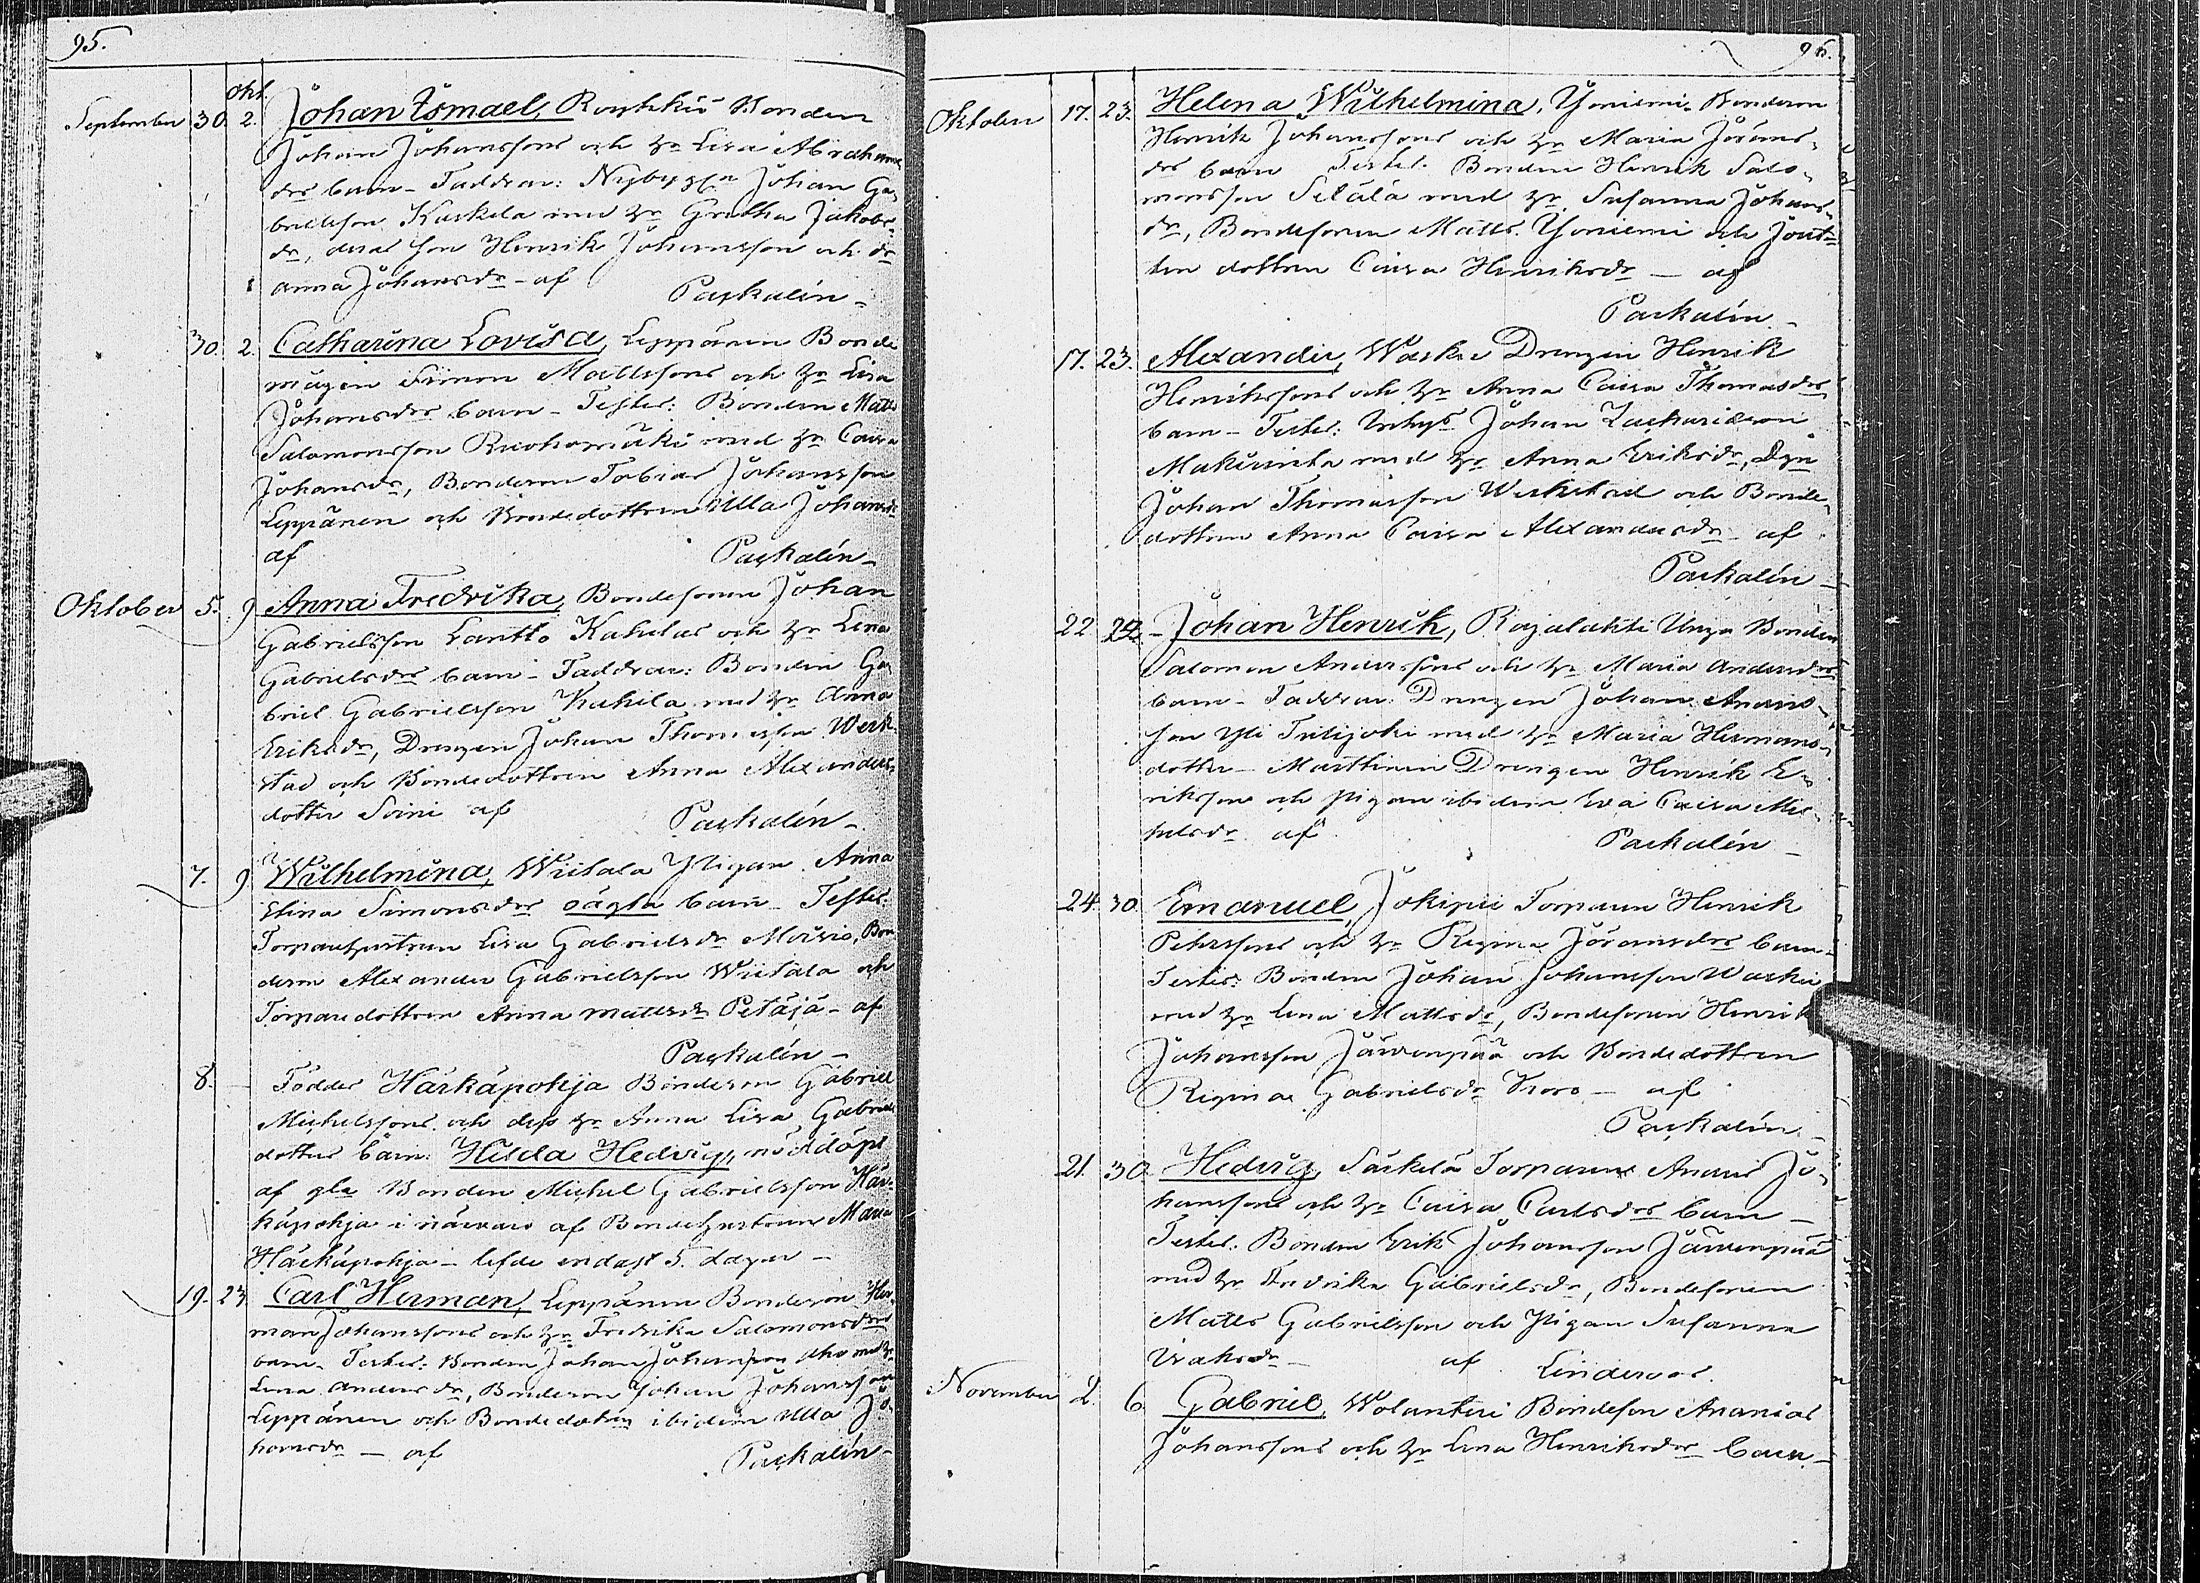 95.
Okt.
September 30. 2. Johan Ismael, Bonden
Johan Johanssons och hr Lisa Abrahams
drs barn - Faddrar: Nybygg Johan Ga-
brielsson Kuckela med hr Gretha Jakobs-
dr, deras son Henrik Johansson och dr
Anna Johansdr - af
Paskalin -
30. 2. Catharina Lovisa, Leppänen Bonde
mågen Simon Mattssons och hr Lisa
Johansdrs barn - Testes: Bonden Matts
Salomonsson Ruohomäki med hr Caisa
Johansdr, Bonderson Tobias Johansson
Leppänen och Bondedottren Ulla Johansdr
af Paskalin -
Oktober 5. 9 Anna Fredrika, Bondesonen Johan
Gabrielsson Lantto och hr Lena
Gabrielsdrs barn - Faddrar: Bonden Ga-
briel Gabrielsson Kahila med hr Anna
Eriksdr, Drengen Johan Thomasson Werk-
stad och Bondedottren Anna Alexanders-
dotter Soini af Paskalin -
7. 9. Wilhelmina, Wiitala Pigan Anna
Elina Simonsdrs oägta barn - Testes:
Torparhustrun Lisa Gabrielsdr Moisio, Bon
derson Alexander Gabrielsson Wiitala och
Torparedottren Anna Mattsdr Petäjä - af
Paskalin -
8. - Föddes Härkäpohja Bonderson Gabriel
Michelssons och dess hr Anna Lisa Gabriels
dotters barn: Hilda Hedvig, nöddöpt
af gla Bonden Michel Gabrielsson Här-
käpohja i närvaro af Bondehustrun Maria
Härkäpohja - lefde endast 5. dagar -
19. 23 Carl Herman, Leppänen Bonderson Her-
man Johanssons och hr Fredrika Salomonsdrs
barn - Testes: Bonden Johan Johansson Aho med hr
Lena Andersdr, Bonderson Johan Johansson
Leppänen och Bondedotren ibidem Ulla Jo-
hansdr - af Paskalin -
96.
Oktober 17. 23. Helena Wilhelmina, Yoniemi Bonderson
Henrik Johanssons och hr Maria Jörans-
drs barn Testes: Bonden Henrik Salo-
monsson Setälä med hr Susanna Johans-
dr, Bondesonen Matts Yoniemi och
dottren Caisa Henriksdr - af
Paskalin -
17. 23. Alexander, Waske Drengen Henrik
Henrikssons och hr Anna Caisa Thomasdrs
barn - Testes: Johan Zachariasson
med hr Anna Eriksdr, Dgn
Johan Thomasson Werkstad och Bonde-
dottren Anna Caisa Alexandersdr af
Paskalin -
22 - Johan Henrik, Rajalahti Unga Bonden
Salomon Anderssons och hr Maria Andersdrs
barn - Faddrar: Drengen Johan Anders-
son Yli med hr Maria Hermans-
dotter - Marttinen Drengen Henrik E-
riksson och pigan ibidem Eva Caisa Mic-
helsdr af Paskalin -
24. 30. Emanuel, Jokipii Torparen Henrik
Peterssons och hr Regina Jöransdrs barn -
Testes: Bonden Johan Johansson Waskia
med hr Lena Mattsdr, Bondesonen Henrik
Johansson Järvenpää och Bondedottren
Regina Gabrielsdr - af
Paskalin -
21. 30. Hedvig, Säskelä Torparens Anders Jo-
hanssons och hr Caisa Carlsdrs barn -
Testes: Bonden Erik Johansson Järvenpää
med hr Fredrika Gabrielsdr, Bondesonen
Matts Gabrielsson och Pigan Susanna
Isaksdr - af Linderoos.
November 2. 6. Gabriel, Wolanteri Bondeson Ananias
Johanssons och hr Lena Henriksdrs barn -